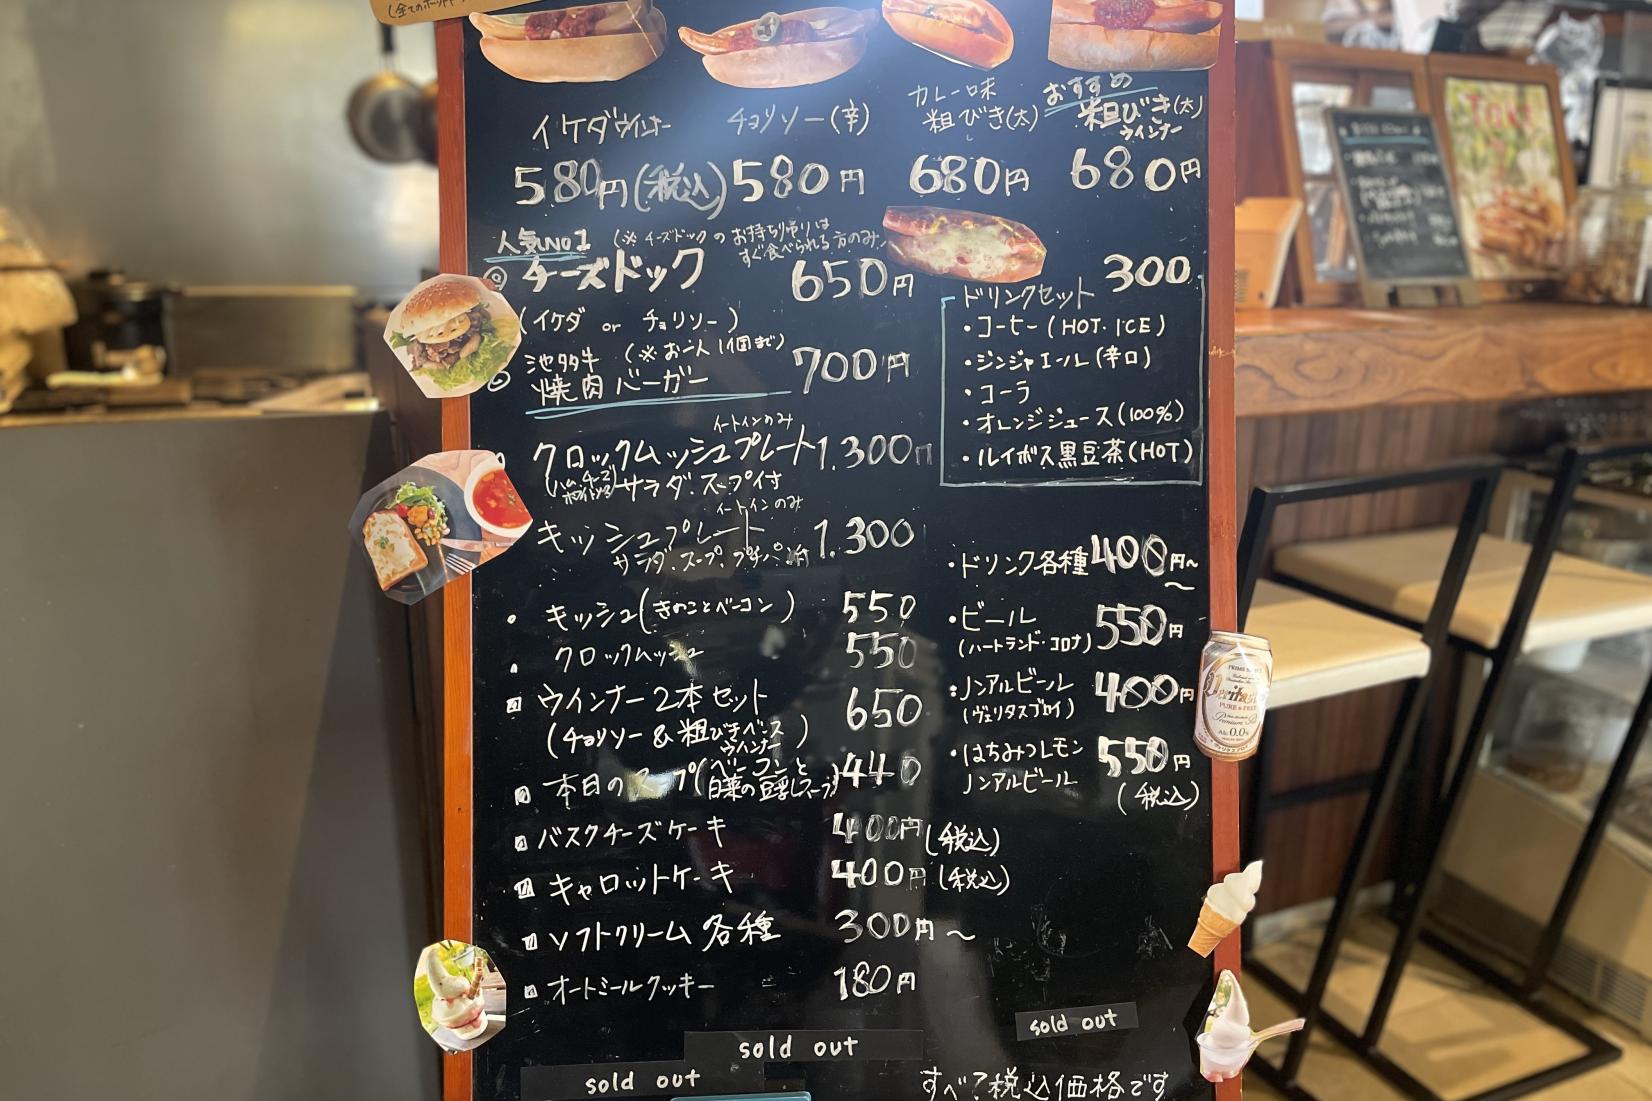 イケダウインナー
580円(税込)
チョリソー(辛)
580円
カレー味
粗びき(太)
680円
おすすめ
粗びき(太)
ウインナー
680円
人気No1
(※チーズドックのお持ち帰りは
すぐ食べられる方のみ)
チーズドック
650円
(イケダ or チョリソー)
(※お一人1個まで)
焼肉バーガー
700円
イートインのみ
クロックムッシュプレート 1.300円
(ハム・チーズ
ホワイトソース)
サラダ・スープ付
イートインのみ
キッシュプレート 1.300
サラダ・スープ・プチパン付
キッシュ(きのことベーコン) 550
クロックムッシュ 550
ウインナー2本セット 650
(チョリソー&粗びきベース
ウインナー)
本日のスープ(ベーコンと
白菜の豆乳スープ) 440
バスクチーズケーキ 400円(税込)
キャロットケーキ 400円(税込)
ソフトクリーム各種 300円〜
オートミールクッキー 180円
ドリンクセット 300
・コーヒー(HOT・ICE)
・ジンジャエール(辛口)
・コーラ
・オレンジジュース(100%)
・ルイボス黒豆茶(HOT)
・ドリンク各種 400円〜
・ビール 550円
(ハートランド・コロナ)
・ノンアルビール 400円
(ヴェリタスブロイ)
・はちみつレモン
ノンアルビール 550円
(税込)
PURE & FREE
0.0%
sold out
sold out
sold out
すべて税込価格です